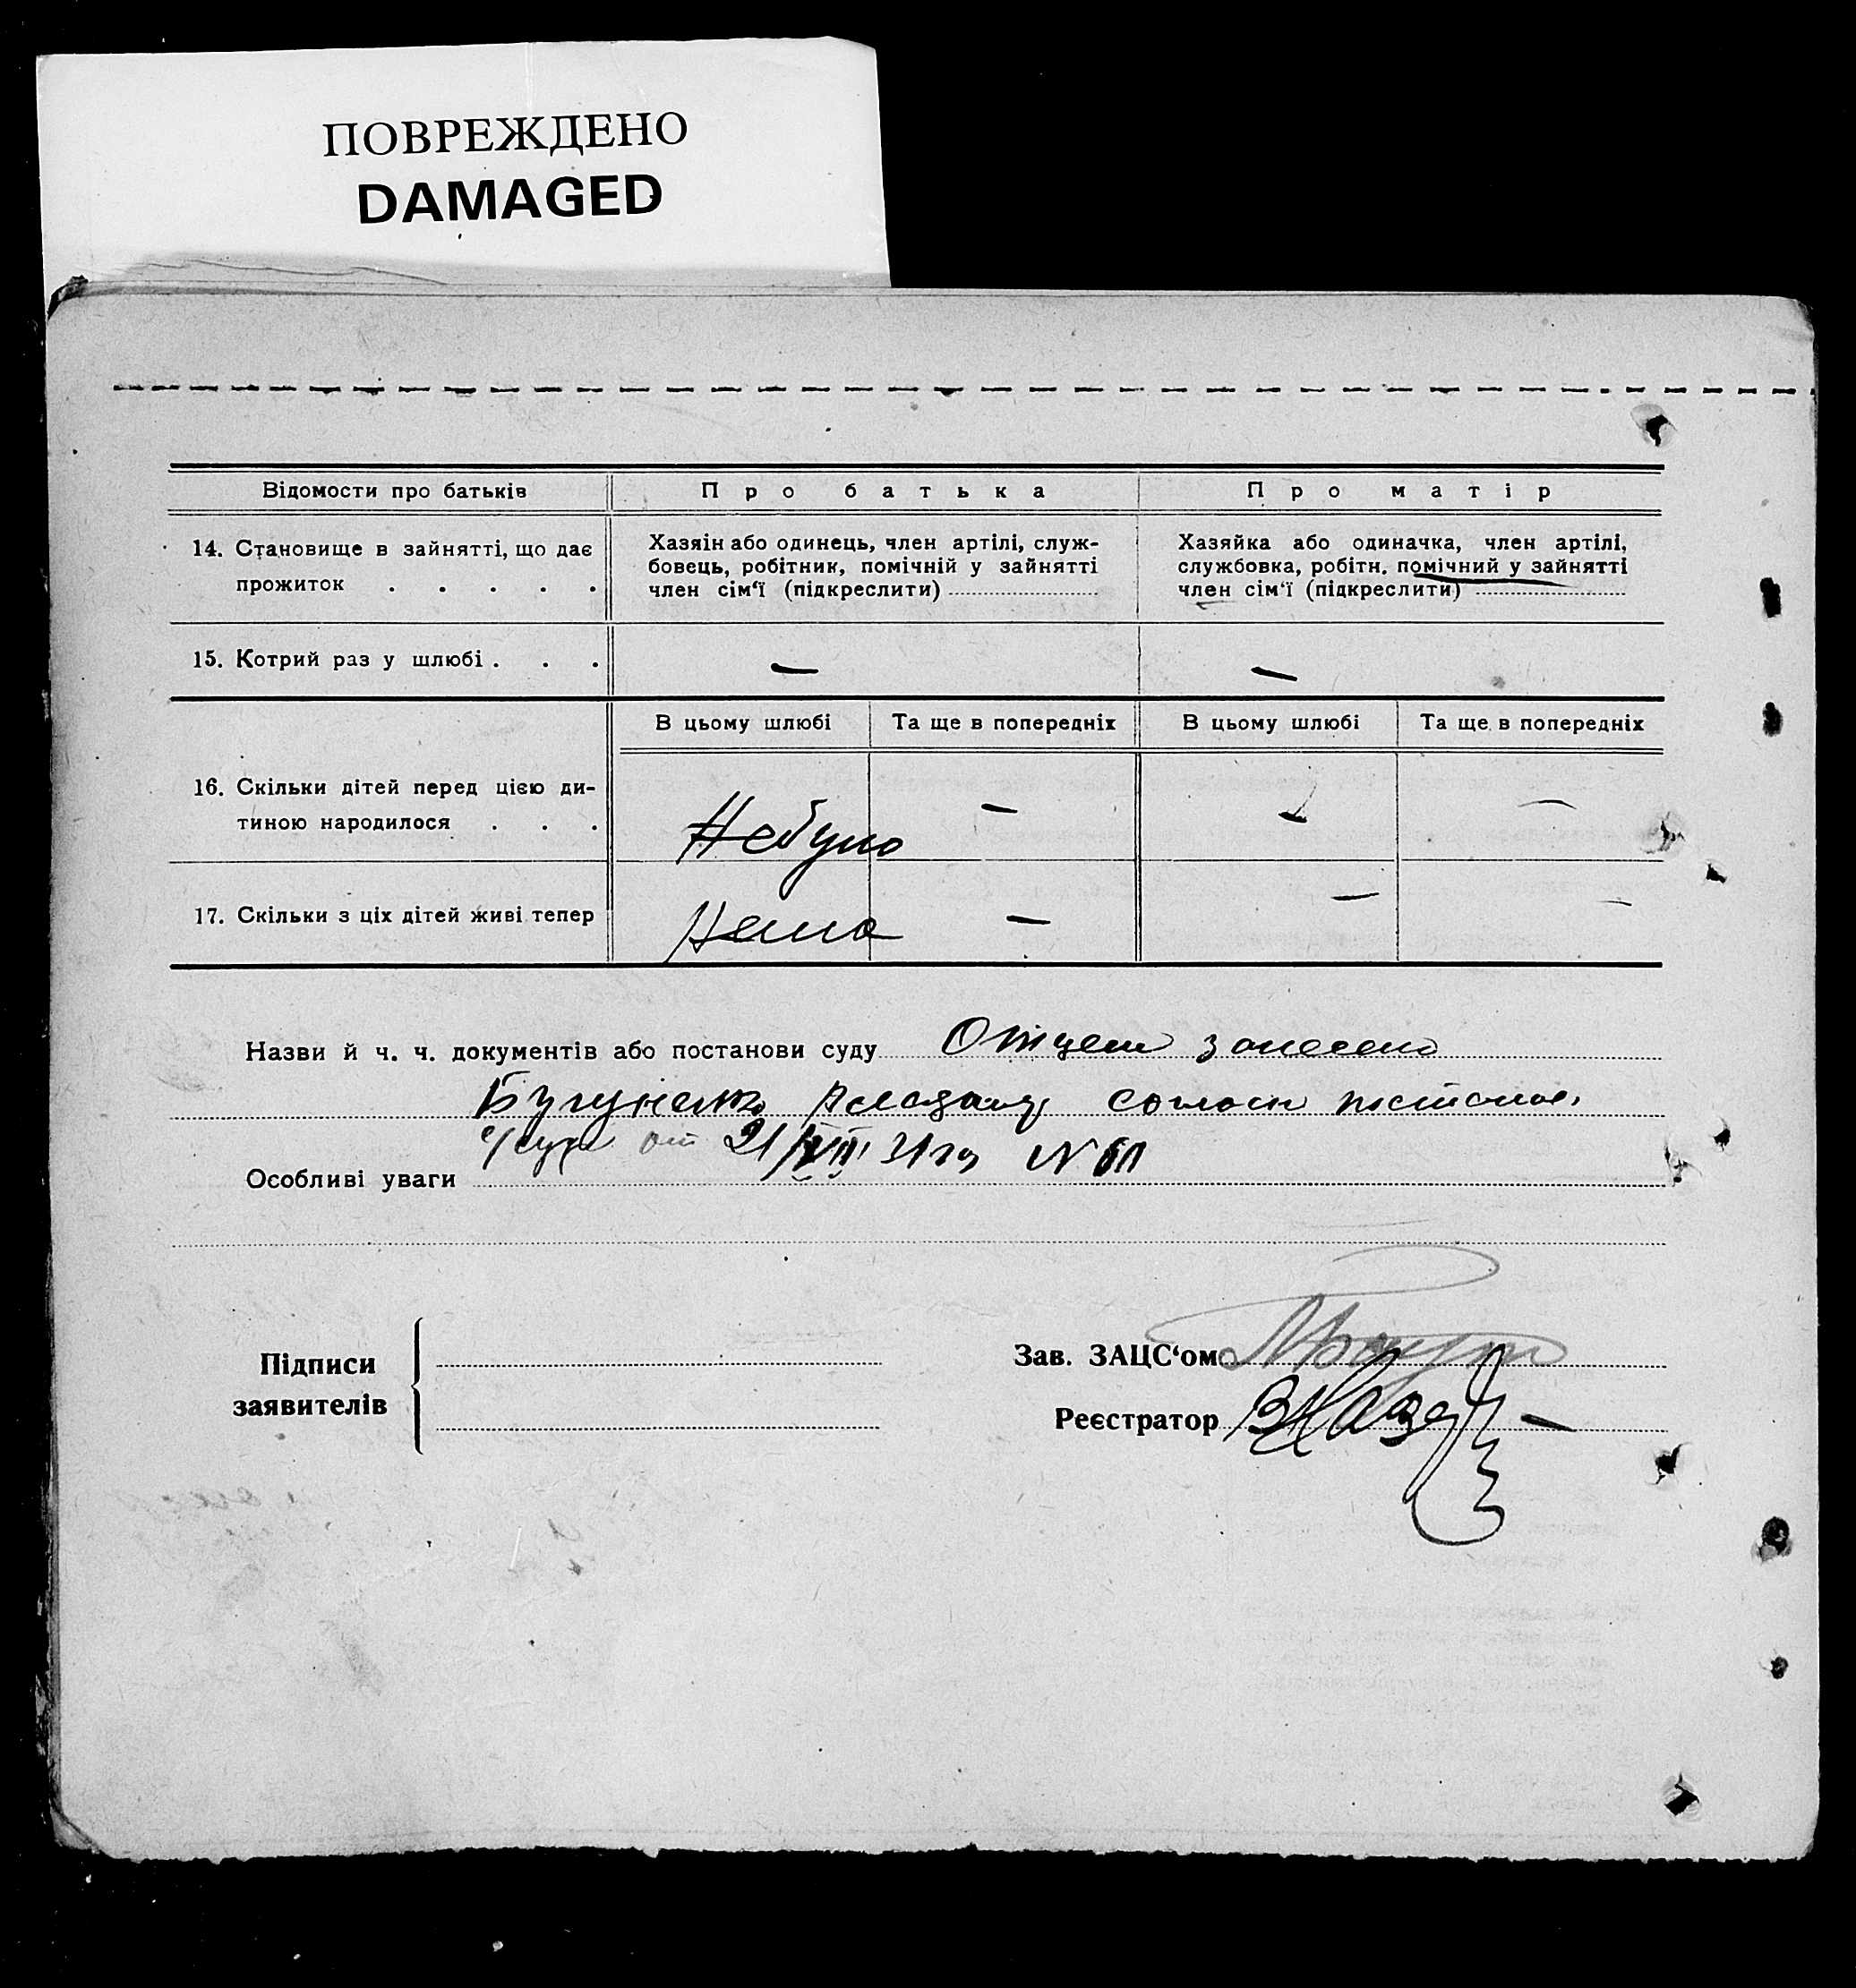 ПОВРЕЖДЕНО
DAMAGED
Відомости про батьків
Про батька
Про матір
14. Становище в зайнятті, що дає
прожиток . . . . .
Хазяін або одинець, член артілі, служ-
бовець, робітник, помічній у зайнятті
член сім‘ї (підкреслити)
Хазяйка або одиначка, член артілі,
службовка, робітн. помічний у зайнятті
член сім‘ї (підкреслити)
15. Котрий раз у шлюбі . . .
—
—
В цьому шлюбі
Та ще в попередніх
В цьому шлюбі
Та ще в попередніх
16. Скільки дітей перед цією ди-
тиною народилося . . .
Небуло
—
—
—
17. Скільки з ціх дітей живі тепер
Нема
—
—
—
Назви й ч. ч. документів або постанови суду Отцем занесено
постанов.
суда от 21/ 31 го №
Особливі уваги
Підписи
заявителів
Зав. ЗАЦС‘ом
Реєстратор